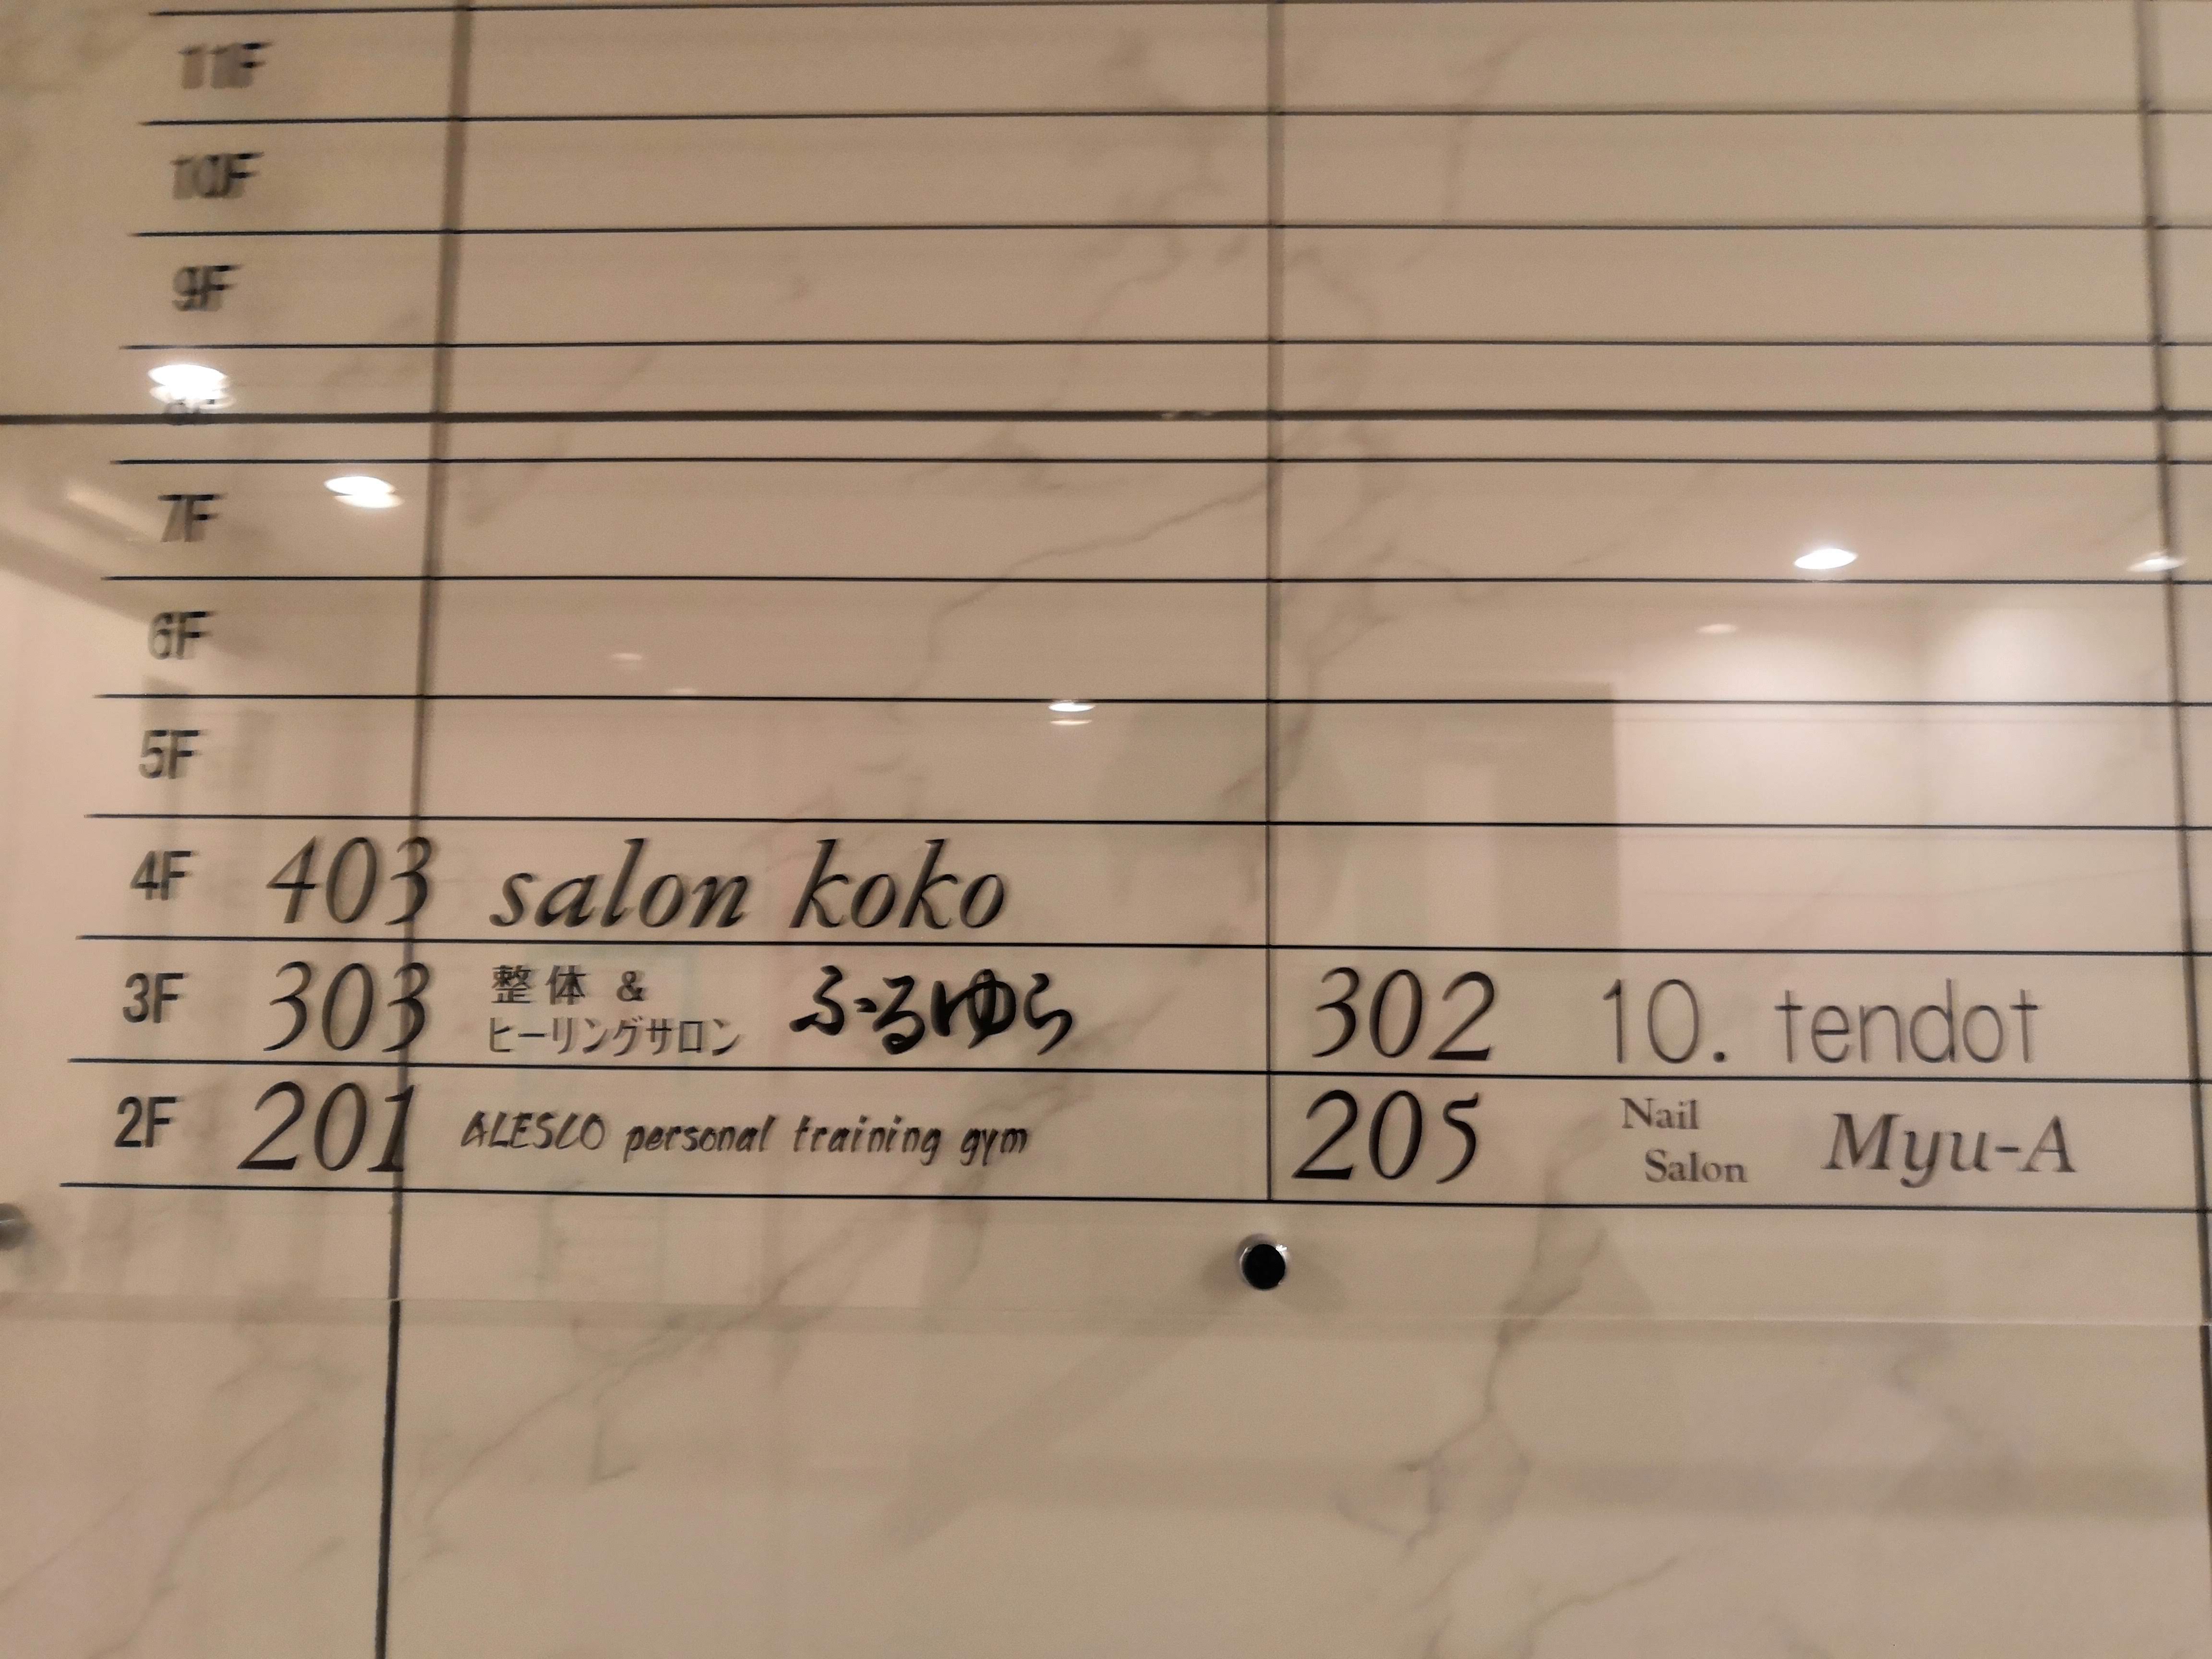 11F
10F
9F
7F
6F
5F
4F 403 salon koko
3F 303 整体 & ヒーリングサロン ふるゆら 302 10. tendot
2F 201 ALESCO personal training gym 205 Nail Salon Myu-A